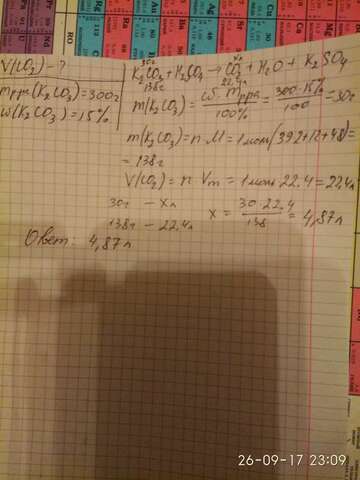 V(CO₂) - ?
mррa(K₂CO₃) = 300г
ω(K₂CO₃) = 15%
30г xл
K₂CO₃ + H₂SO₄ → CO₂ + H₂O + K₂SO₄
138г 22,4л
m(K₂CO₃) = ω · mррa / 100% = 300 · 15% / 100 = 30г
m(K₂CO₃) = n · M = 1моль (39·2+12+48) =
= 138г
V(CO₂) = n Vm = 1моль · 22.4 = 22,4л
30г - xл
138г - 22.4л
x = 30 · 22.4 / 138 = 4,87л
Ответ: 4,87л
26-09-17 23:09